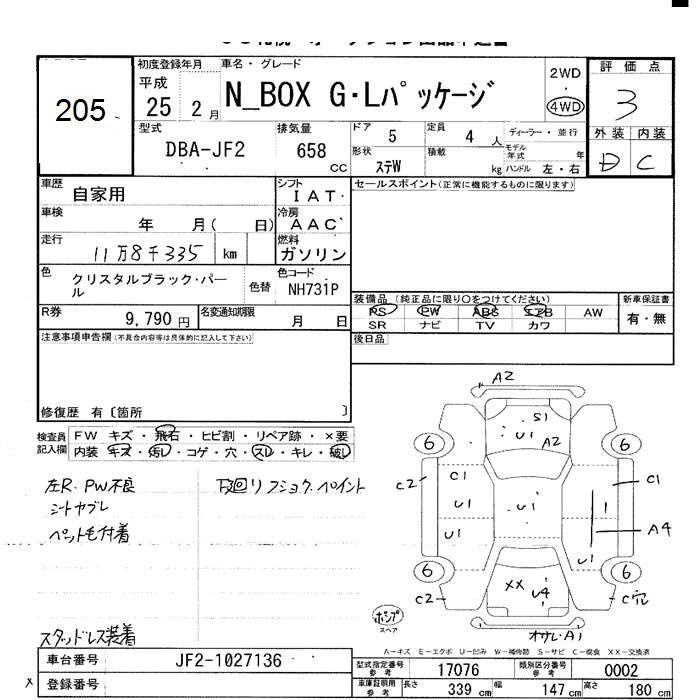 205
初度登録年月
平成
25 2月
車名・グレード
N_BOX G・Lパッケージ
2WD
4WD
評価点
3
外装 内装
D C
型式
DBA-JF2
排気量
658 CC
ドア 5
形状 ステW
定員 4 人
積載 kg
ディーラー・並行
モデル年式 年
ハンドル 左・右
車歴 自家用
車検 年 月( 日)
走行 11万8千335 km
色 クリスタルブラック・パール
色替
シフト IAT
冷房 AAC
燃料 ガソリン
色コード NH731P
R券 9,790 円
名変通知期限 月 日
セールスポイント(正常に機能するものに限ります)
装備品 (純正品に限り〇をつけてください)
PS PW ABS エアB AW
SR ナビ TV カワ
新車保証書
有・無
後日品
注意事項申告欄(不具合内容等は具体的に記入して下さい)
修復歴 有〔箇所 〕
検査員記入欄
FW キズ・飛石・ヒビ割・リペア跡・×要
内装 キズ・汚レ・コゲ・穴・スレ・キレ・破レ
左R.PW不良
シートヤブレ
ペット毛付着
下廻りフショク.ペイント
スタッドレス装着
A2
S1
U1
A2
6
6
C2
C1
U1
U1
U1
C1
1
A4
U1
U1
6
6
C2
XX
U4
C穴
ポンプ
スペア
オサレ・A1
A-キズ E-エクボ U-凹み W-補修跡 S-サビ C-腐食 XX-交換
車台番号 JF2-1027136
登録番号
x
型式指定番号 参考 17076
類別区分番号 参考 0002
車庫証明用 参考 長さ 339 cm 幅 147 cm 高さ 180 cm